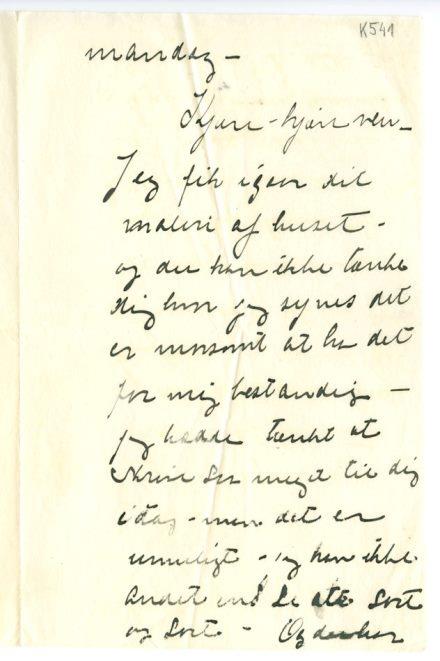 K541
mandag –
Kjære – kjære ven –
Jeg fik igaar dit
maleri af huset –
og du kan ikke tænke
dig hvor jeg synes det
er morsomt at ha det
for mig bestandig –
jeg hadde tænkt at
skrive saa meget til dig
idag – men det er
umuligt – jeg kan ikke
andet end se alt sort
og sort – Og du har